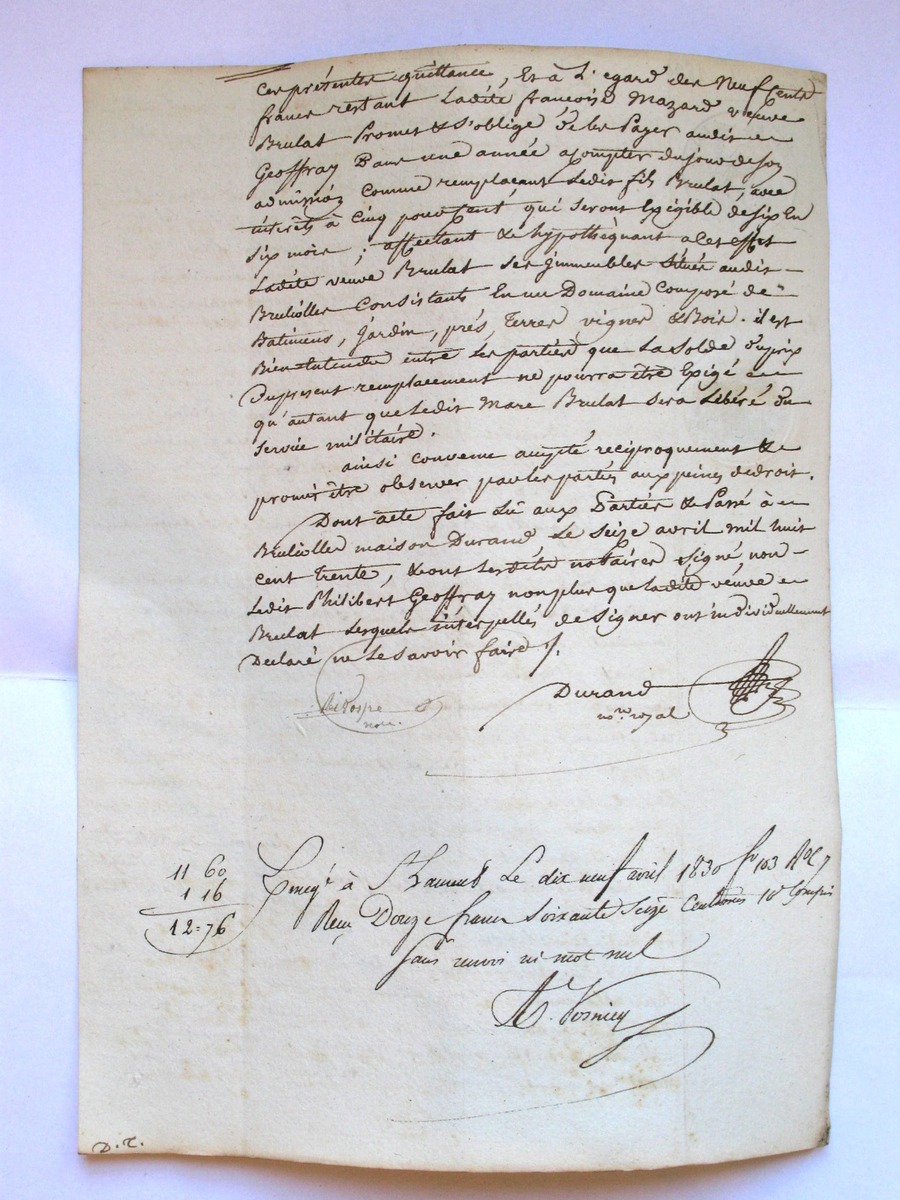 ces présentes quittance, Et à L'egard des Neuf cents
francs restant Ladite francoise Mazard veuve
Brulat Promet & s'oblige de les Payer audit
Geoffray Dans une année a compter du jour de son
admission comme remplacant Ledit fils Brulat, avec
intérêts à cinq pour cent qui seront Exigible de six En
six mois ; affectant & hypothéquant a Cet effet
Ladite veuve Brulat ses jmmeubles situés audit
Brulliolles Consistants En un Domaine Composé de
Batimens, jardin, prés, Terres vignes & Bois. il est
Bien Entendu entre Les parties que La solde du prix
Du present remplacement ne pourra être Exigé
qu'autant que Ledit Marc Brulat sera Libéré du
service militaire.
ainsi convenu accepté reciproquement &
promis être observer par les parties aux peines de droit.
Dont acte fait Lu aux Parties & Passé à
Brulliolle maison Durand Le seize avril mil huit
cent trente, & ont Lesdits notaires signé, non
Ledit Philibert Geoffray non plus que ladite veuve
Brulat Lesquels intérpellés de signer ont individuellement
Declaré ne Le savoir faire /.
Durand
nre royal
11 60
1 16
12=76
Enregé à St Laurent Le dix neuf avril 1830 fo 103 Ro C 7
Reçu Douze francs soixante seize Centimes 10e Compris
Sans renvoi ni mot nul
D. T.